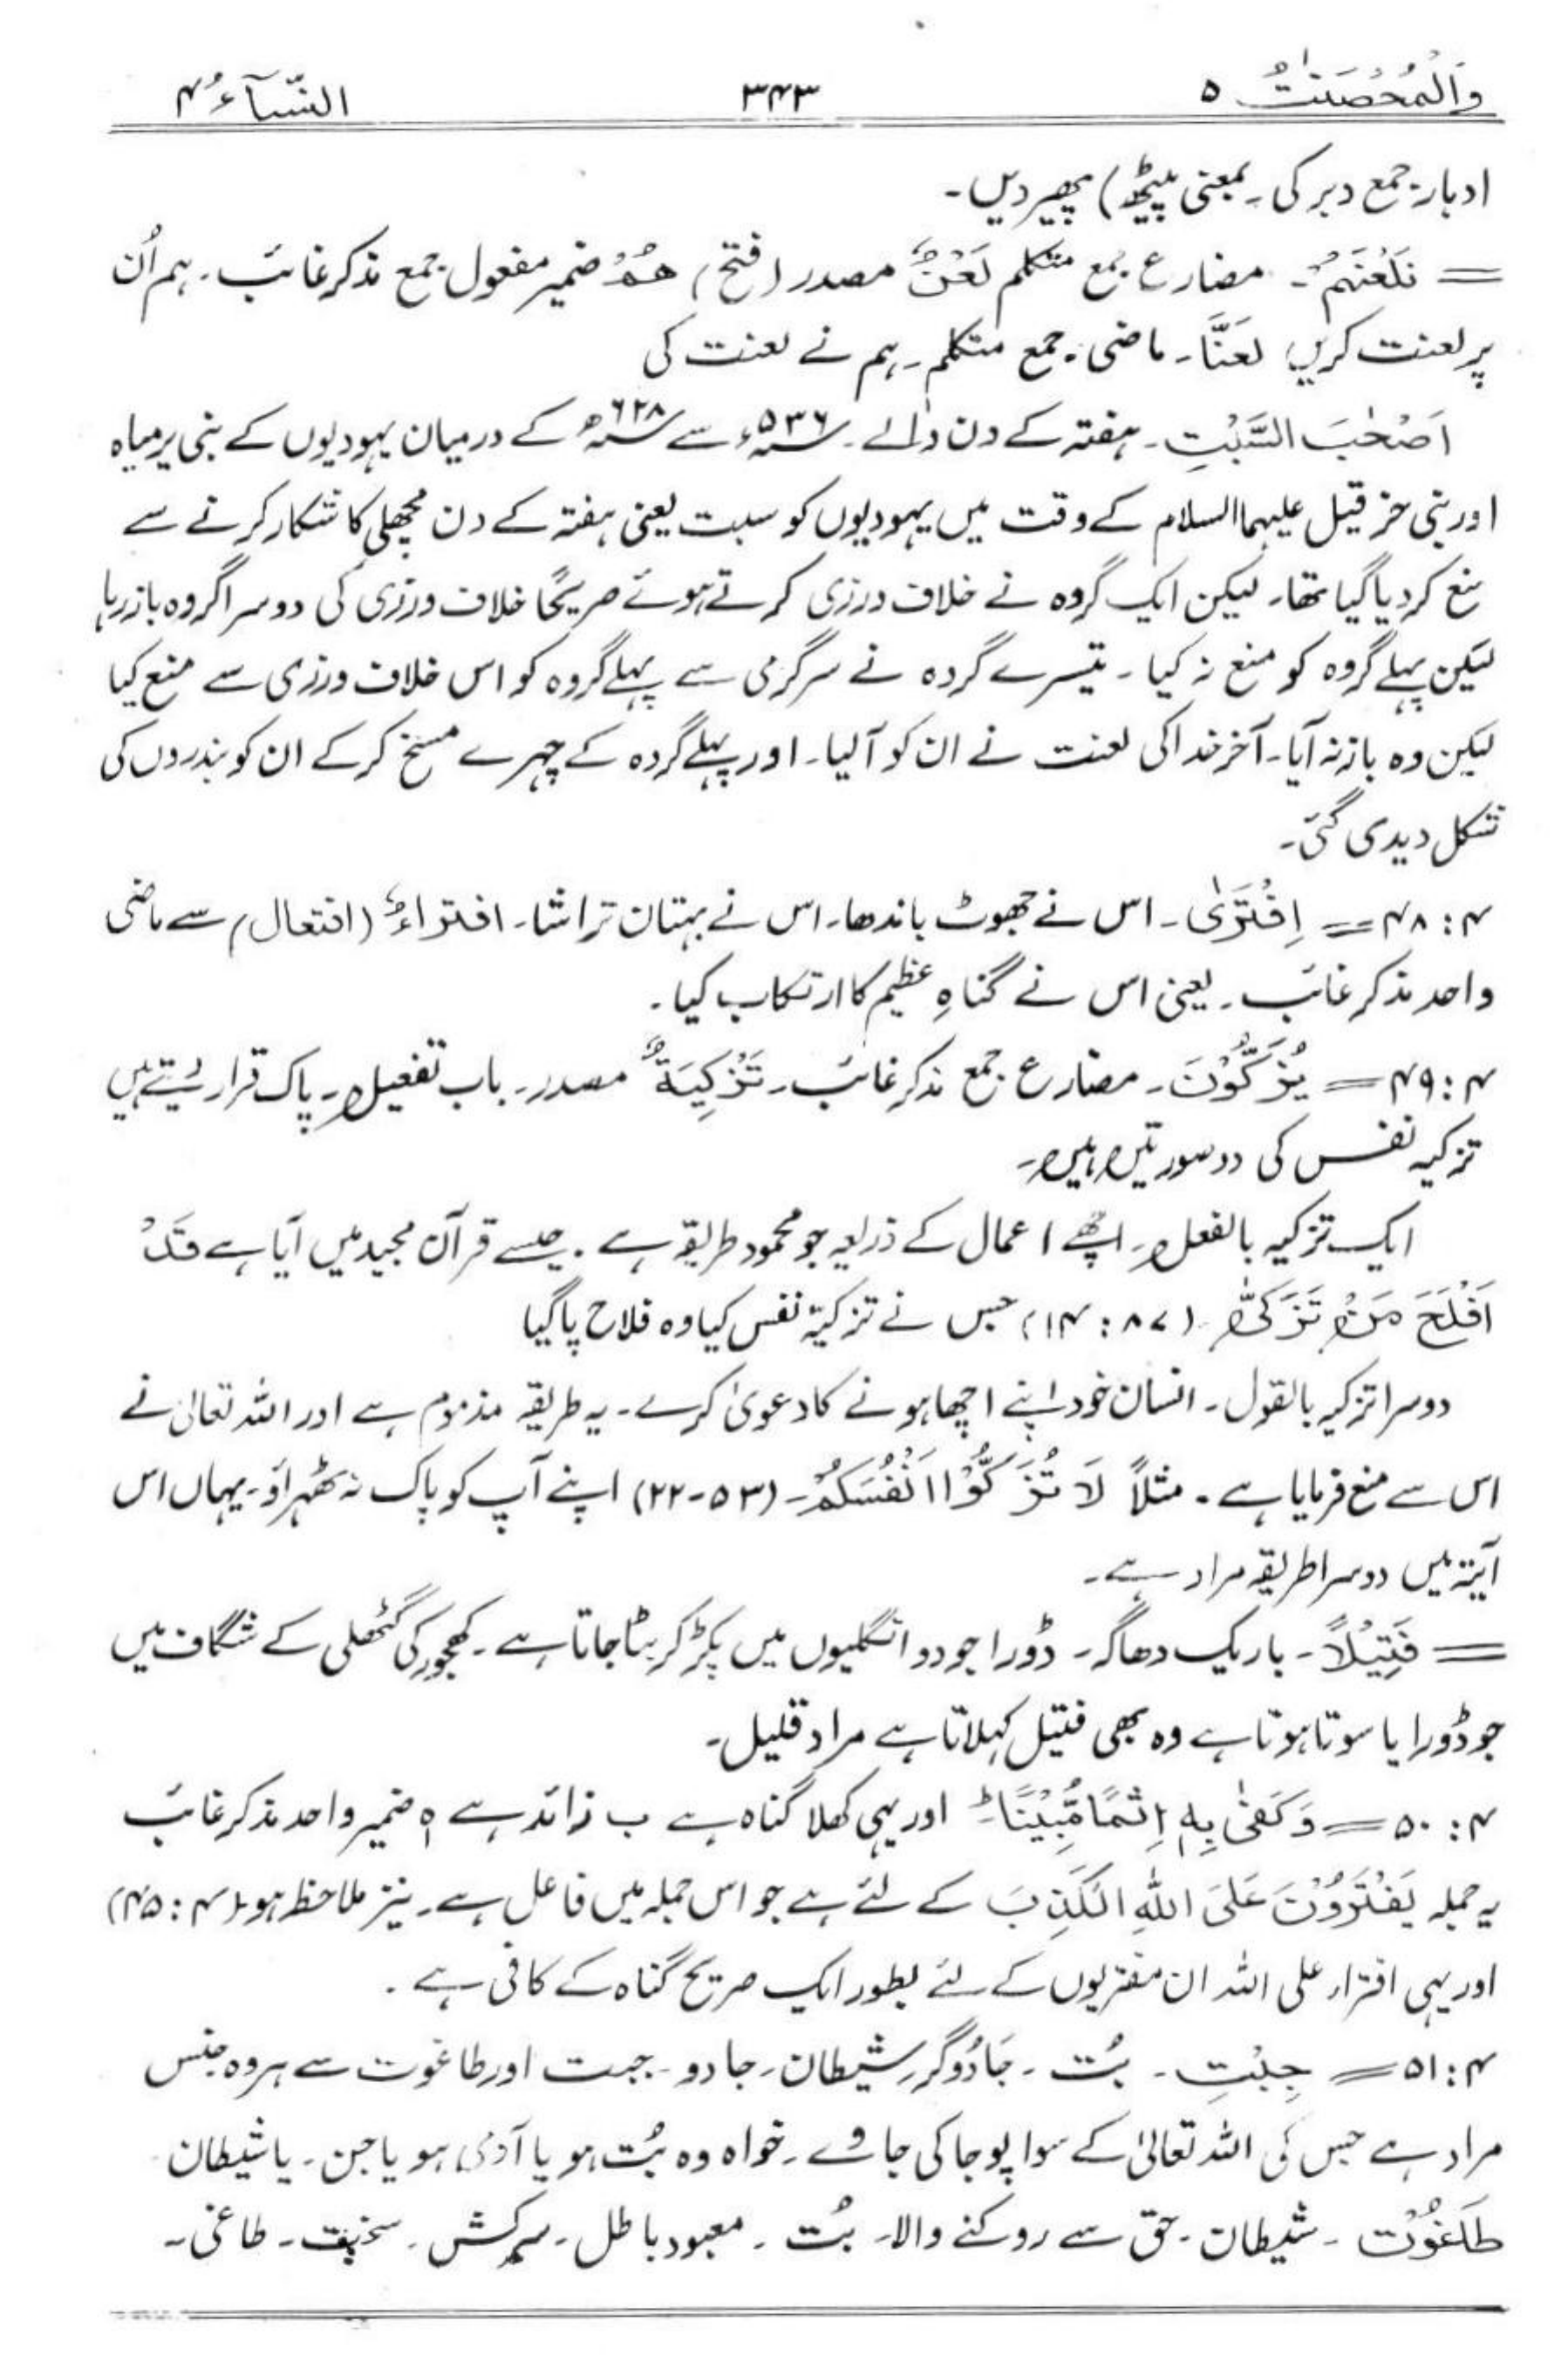 وَالْمُحْصَنٰتُ ۵ ۳۴۳ النِّسَآءُ ۴
ادبار۔ جمع دبر کی۔ بمعنی پیٹھ) پھیر دیں۔
= نَلْعَنَهُمْ۔ مضارع جمع متکلم لَعْنٌ مصدر (فتح) هُمْ ضمیر مفعول جمع مذکر غائب۔ ہم اُن
پر لعنت کریں لَعَنَّا۔ ماضی۔ جمع متکلم۔ ہم نے لعنت کی
اَصْحٰبَ السَّبْتِ۔ ہفتہ کے دن والے۔ ۵۳۶ء سے ۶۲۸ء کے درمیان یہودیوں کے نبی یرمیاہ
اور نبی حزقیل علیہما السلام کے وقت میں یہودیوں کو سبت یعنی ہفتہ کے دن مچھلی کا شکار کرنے سے
منع کر دیا گیا تھا۔ لیکن ایک گروہ نے خلاف ورزی کرتے ہوئے صریحًا خلاف ورزی کی دوسرا گروہ باز رہا
لیکن پہلے گروہ کو منع نہ کیا۔ تیسرے گروہ نے سرگرمی سے پہلے گروہ کو اس خلاف ورزی سے منع کیا
لیکن وہ باز نہ آیا۔ آخر خدا کی لعنت نے ان کو آلیا۔ اور پہلے گروہ کے چہرے مسخ کر کے ان کو بندروں کی
شکل دیدی گئی۔
۴: ۴۸ = اِفْتَرٰی۔ اس نے جھوٹ باندھا۔ اس نے بہتان تراشا۔ افتراءٌ (افتعال) سے ماضی
واحد مذکر غائب۔ یعنی اس نے گناہِ عظیم کا ارتکاب کیا۔
۴: ۴۹ = یُزَکُّوْنَ۔ مضارع جمع مذکر غائب۔ تَزْکِیَةٌ مصدر۔ باب تفعیل۔ پاک قرار دیتے ہیں
تزکیہ نفس کی دو صورتیں ہیں۔
ایک تزکیہ بالفعل۔ اچھے اعمال کے ذریعہ جو محمود طریقہ ہے۔ جیسے قرآن مجید میں آیا ہے قَدْ
اَفْلَحَ مَنْ تَزَکّٰی (۸۷: ۱۴) جس نے تزکیۂ نفس کیا وہ فلاح پاگیا
دوسرا تزکیہ بالقول۔ انسان خود اپنے اچھا ہونے کا دعویٰ کرے۔ یہ طریقہ مذموم ہے اور اللہ تعالیٰ نے
اس سے منع فرمایا ہے۔ مثلاً لَا تُزَکُّوْا اَنْفُسَکُمْ۔ (۵۳-۲۲) اپنے آپ کو پاک نہ ٹھہراؤ۔ یہاں اس
آیۃ میں دوسرا طریقہ مراد ہے۔
= فَتِیْلًا۔ باریک دھاگہ۔ ڈورا جو دو انگلیوں میں پکڑ کر بٹا جاتا ہے۔ کھجور کی گٹھلی کے شگاف میں
جو ڈورا یا سوتا ہوتا ہے وہ بھی فتیل کہلاتا ہے مراد قلیل۔
۴: ۵۰ = وَکَفٰی بِهٖ اِثْمًا مُّبِیْنًا۔ اور یہی کھلا گناہ ہے ب زائد ہے ہٖ ضمیر واحد مذکر غائب
یہ جملہ یَفْتَرُوْنَ عَلَی اللهِ الْکَذِبَ کے لئے ہے جو اس جملہ میں فاعل ہے۔ نیز ملاحظہ ہو (۴: ۴۵)
اور یہی افترار علی اللہ ان مفتریوں کے لئے بطور ایک صریح گناہ کے کافی ہے۔
۴: ۵۱ = جِبْتِ۔ بُت۔ جَادُوگر۔ شیطان۔ جادو۔ جبت اور طاغوت سے ہر وہ جنس
مراد ہے جس کی اللہ تعالیٰ کے سوا پوجا کی جاوے۔ خواہ وہ بُت ہو یا آدمی ہو یا جن۔ یا شیطان
طَاغُوْت۔ شیطان۔ حق سے روکنے والا۔ بُت۔ معبود باطل۔ سرکش۔ طاغی۔